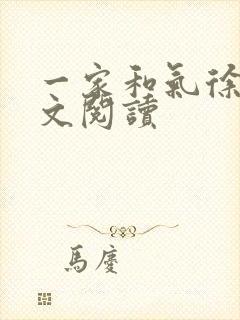 一家和氣徐
文閱讀
馬慶